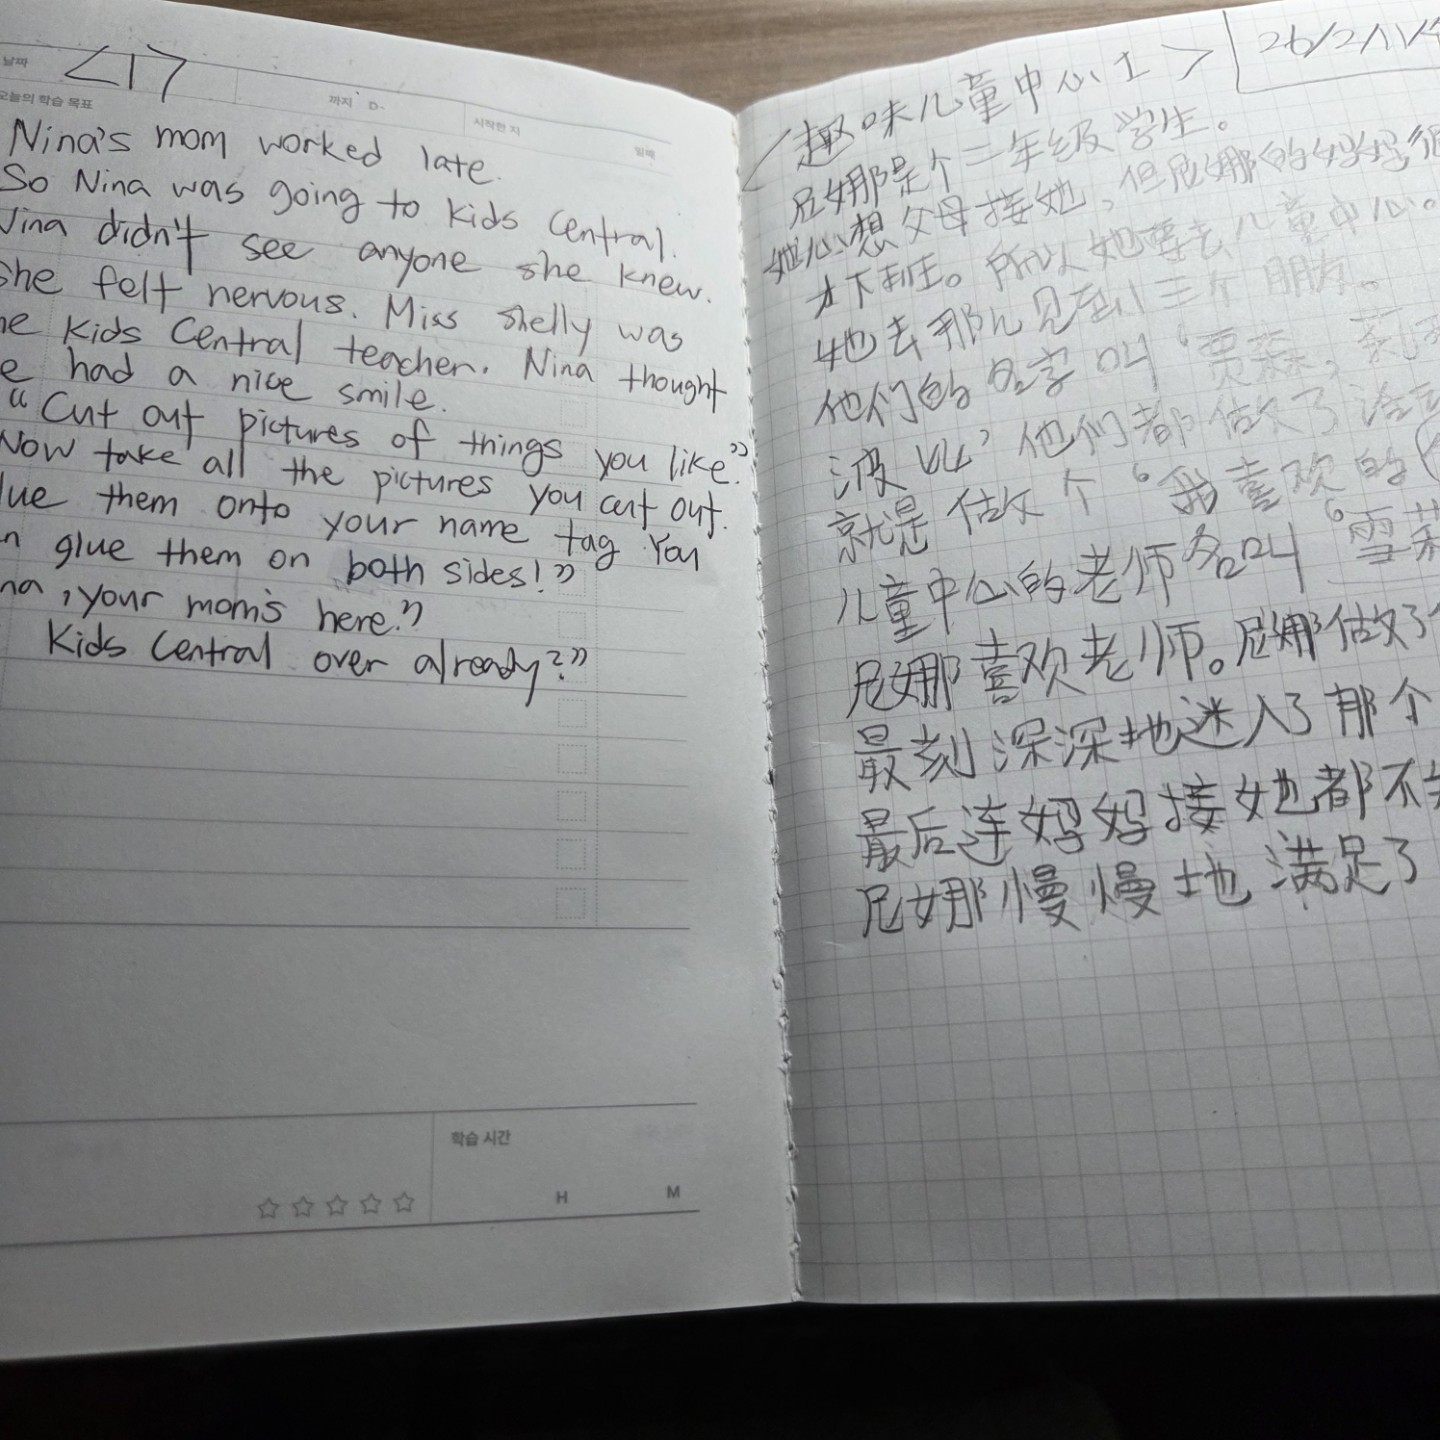 날짜
<1>
오늘의 학습 목표
까지 D-
시작한 지
일째
Nina's mom worked late.
So Nina was going to Kids Central.
Nina didn't see anyone she knew.
She felt nervous. Miss Shelly was
Kids Central teacher. Nina thought
had a nice smile.
"Cut out pictures of things you like."
Now take all the pictures you cut out.
them onto your name tag You
glue them on both sides!"
, your mom's here."
Kids Central over already?"
학습 시간
H
M
<趣味儿童中心1>
26/2/11/
尼娜是个二年级学生。
她心想父母接她，但尼娜的妈妈很
才下班。所以她要去儿童中心。
她去那儿见到三个朋友。
他们的名字叫‘贾森，莉
波比’他们都做了
就是做个‘我喜欢的
儿童中心的老师名叫‘雪莉
尼娜喜欢老师。尼娜做了
最刻深深地迷入了那个
最后连妈妈接她都不
尼娜慢慢地满足了